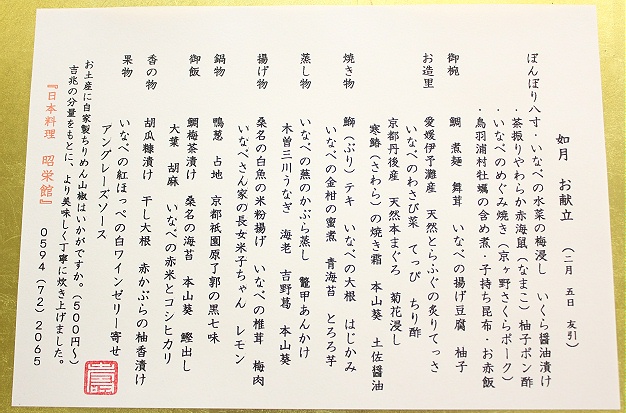 如月　お献立　（二月　五日　友引）
ぼんぼり八寸・いなべの水菜の梅浸し　いくら醤油漬け
・茶振りやわらか赤海鼠（なまこ）柚子ポン酢
・いなべのめぐみ焼き（京ヶ野さくらポーク）
・鳥羽浦村牡蠣の含め煮・子持ち昆布・お赤飯
御椀　鯛　煮麺　舞茸　いなべの揚げ豆腐　柚子
お造里　愛媛伊予灘産　天然とらふぐの炙りてっさ
いなべのわさび菜　てっぴ　ちり酢
京都丹後産　天然本まぐろ　菊花浸し
寒鰆（さわら）の焼き霜　本山葵　土佐醤油
焼き物　鰤（ぶり）テキ　いなべの大根　はじかみ
いなべの金柑の蜜煮　青海苔　とろろ芋
蒸し物　いなべの蕪のかぶら蒸し　鼈甲あんかけ
木曽三川うなぎ　海老　吉野葛　本山葵
揚げ物　桑名の白魚の米粉揚げ　いなべの椎茸　梅肉
いなべさん家の長女米子ちゃん　レモン
鍋物　鴨葱　占地　京都祇園原了郭の黒七味
御飯　鯛梅茶漬け　桑名の海苔　本山葵　鰹出し
大葉　胡麻　いなべの赤米とコシヒカリ
香の物　胡瓜糠漬け　干し大根　赤かぶらの柚香漬け
果物　いなべの紅ほっぺの白ワインゼリー寄せ
アングレーズソース
お土産に自家製ちりめん山椒はいかがですか。（500円〜）
吉兆の分量をもとに、より美味しく丁寧に炊き上げました。
『日本料理　昭栄館』　0594（72）2065